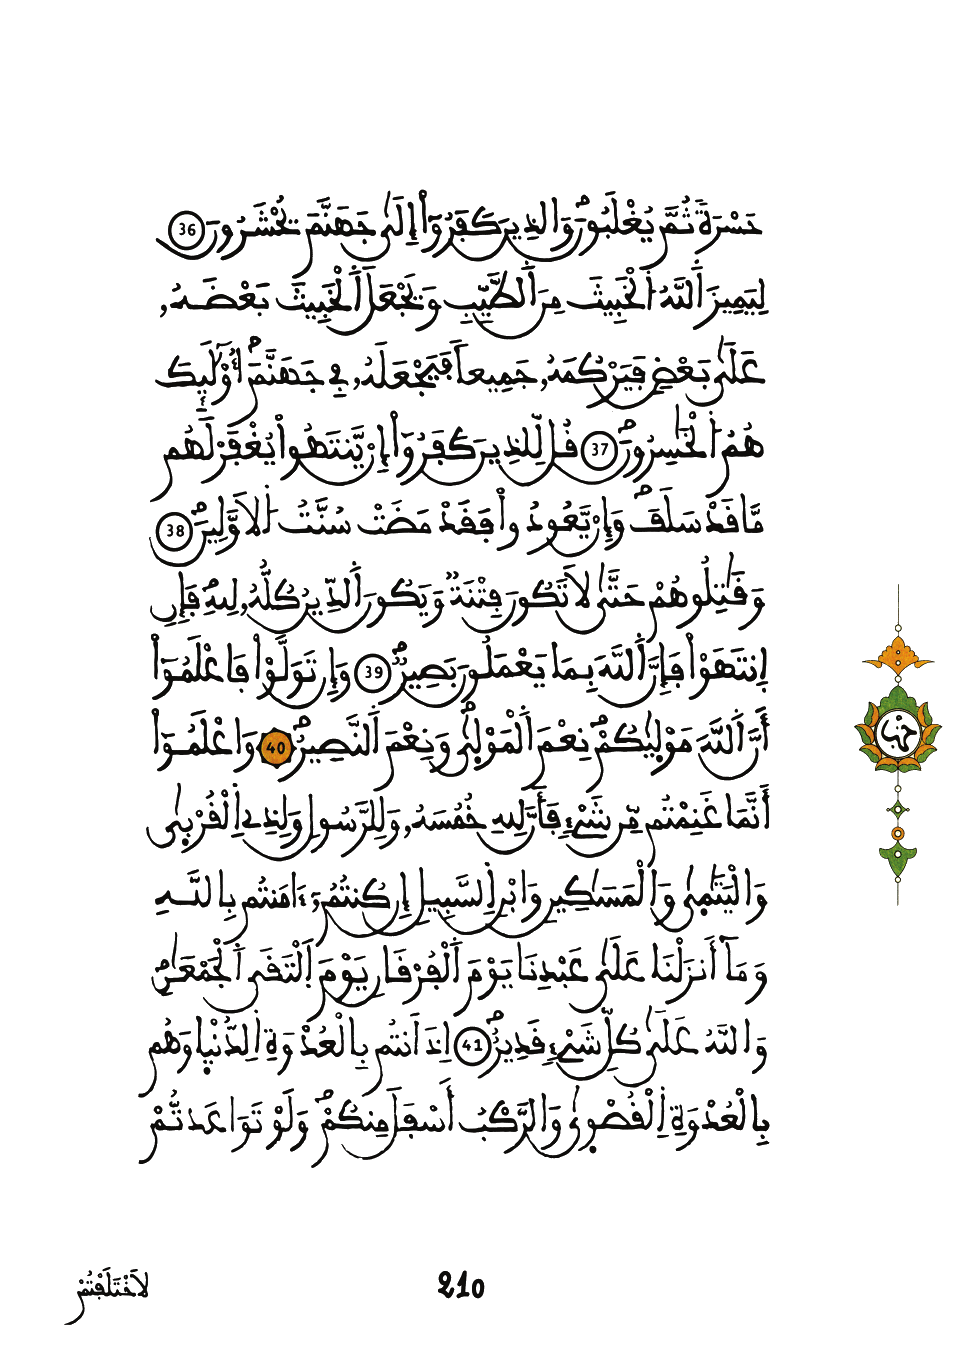 حَسْرَةٗ ثُمَّ يُغْلَبُونَۖ وَالذِينَ كَفَرُوٓاْ إِلَىٰ جَهَنَّمَ يُحْشَرُونَ 36
لِيَمِيزَ اَ۬للَّهُ اُ۬لْخَبِيثَ مِنَ اَ۬لطَّيِّبِ وَيَجْعَلَ اَ۬لْخَبِيثَ بَعْضَهُۥ
عَلَىٰ بَعْضٖ فَيَرْكُمَهُۥ جَمِيعاٗ فَيَجْعَلَهُۥ فِي جَهَنَّمَۖ أُوْلَٰٓئِكَ
هُمُ اُ۬لْخَٰسِرُونَۖ 37 قُل لِّلذِينَ كَفَرُوٓاْ إِنْ يَّنتَهُواْ يُغْفَرْ لَهُم
مَّا قَدْ سَلَفَۖ وَإِنْ يَّعُودُواْ فَقَدْ مَضَتْ سُنَّتُ اُ۬لَاوَّلِينَۖ 38
وَقَٰتِلُوهُمْ حَتَّىٰ لَا تَكُونَ فِتْنَةٞ وَيَكُونَ اَ۬لدِّينُ كُلُّهُۥ لِلهِۖ فَإِنِ
اِ۪نتَهَوْاْ فَإِنَّ اَ۬للَّهَ بِمَا يَعْمَلُونَ بَصِيرٞۖ 39 وَإِن تَوَلَّوْاْ فَاعْلَمُوٓاْ
أَنَّ اَ۬للَّهَ مَوْلَيٰكُمْۖ نِعْمَ اَ۬لْمَوْلَىٰ وَنِعْمَ اَ۬لنَّصِيرُۖ 40 وَاعْلَمُوٓاْ
أَنَّمَا غَنِمْتُم مِّن شَيْءٖ فَأَنَّ لِلهِ خُمُسَهُۥ وَلِلرَّسُولِ وَلِذِي اِ۬لْقُرْبَىٰ
وَالْيَتَٰمَىٰ وَالْمَسَٰكِينِ وَابْنِ اِ۬لسَّبِيلِ إِن كُنتُمُۥٓ ءَامَنتُم بِاللَّهِ
وَمَآ أَنزَلْنَا عَلَىٰ عَبْدِنَا يَوْمَ اَ۬لْفُرْقَانِ يَوْمَ اَ۪لْتَقَى اَ۬لْجَمْعَٰنِۖ
وَاللَّهُ عَلَىٰ كُلِّ شَيْءٖ قَدِيرٌۖ 41 اِذَ اَنتُم بِالْعُدْوَةِ اِ۬لدُّنْيَا وَهُم
بِالْعُدْوَةِ اِ۬لْقُصْوَىٰ وَالرَّكْبُ أَسْفَلَ مِنكُمْۖ وَلَوْ تَوَاعَدتُّمْ
حزب
210
لَاخْتَلَفْتُمْ